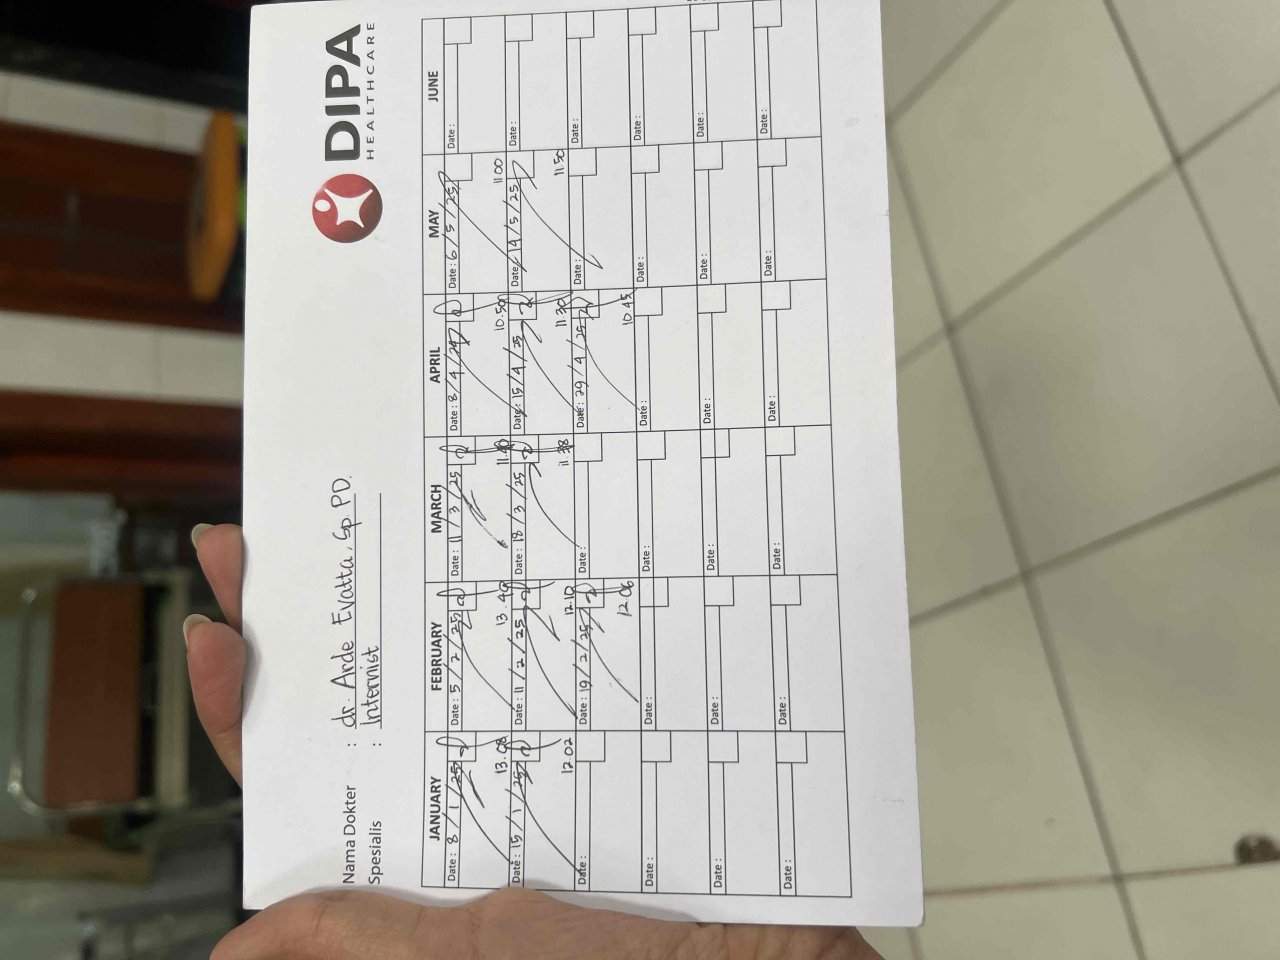 DIPA
HEALTHCARE
Nama Dokter : dr. Arde Evatta, Sp. PD.
Spesialis : Internist
JANUARY FEBRUARY MARCH APRIL MAY JUNE
Date : 8 / 1 / 25 Date : 5 / 2 / 25 Date : 11 / 3 / 25 Date : 8 / 4 / Date : 6 / 5 / 25 Date :
13.08 13.49 11.40 10.50 11.00
Date : 15 / 1 / 25 Date : 11 / 2 / 25 Date : 18 / 3 / 25 Date : 15 / 4 / 25 Date : 14 / 5 / 25 Date :
12.02 12.10 11.38 11.30 11.50
Date : Date : 19 / 2 / 25 Date : Date : 29 / 4 / 25 Date : Date :
12.06 10.45
Date : Date : Date : Date : Date : Date :
Date : Date : Date : Date : Date : Date :
Date : Date : Date : Date : Date : Date :